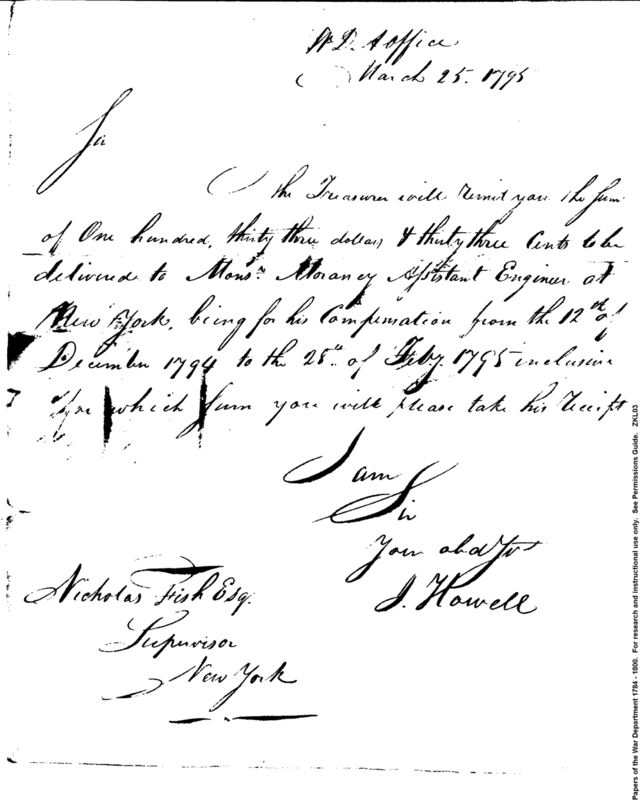 W.D. A office
March 25. 1795
Sir
The Treasurer will remit you the Sum
of One hundred, thirty three dollars & thirty three Cents to be
delivered to Monsr. Morancy Assistant Engineer at
New York, being for his Compensation from the 12th of
December 1794 to the 28th of Feby. 1795 inclusive
for which Sum you will please take his receipt
I am
Sir
Your obd Svt
J. Howell
Nicholas Fish Esq.
Supervisor
New York
Papers of the War Department 1784 - 1800. For research and instructional use only. See Permissions Guide. ZKL03